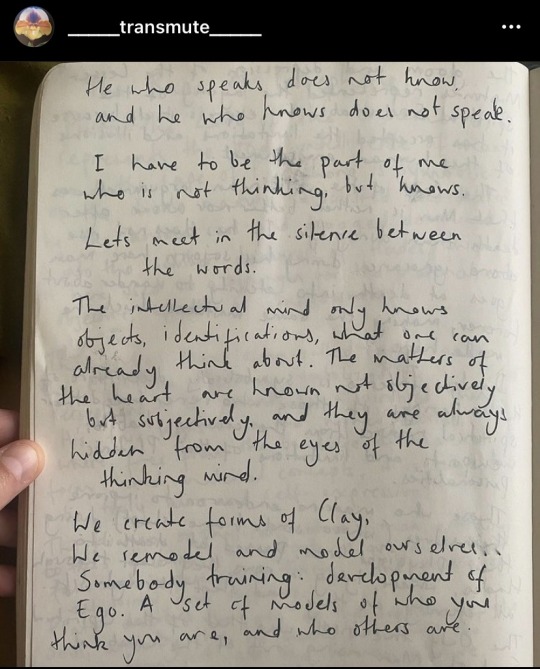 _____transmute_____
He who speaks does not know,
and he who knows does not speak.
I have to be the part of me
who is not thinking, but knows.
Lets meet in the silence between
the words.
The intellectual mind only knows
objects, identifications, what one can
already think about. The matters of
the heart are known not objectively
but subjectively, and they are always
hidden from the eyes of the
thinking mind.
We create forms of Clay,
We remodel and model ourselves..
Somebody training: development of
Ego. A set of models of who you
think you are, and who others are.